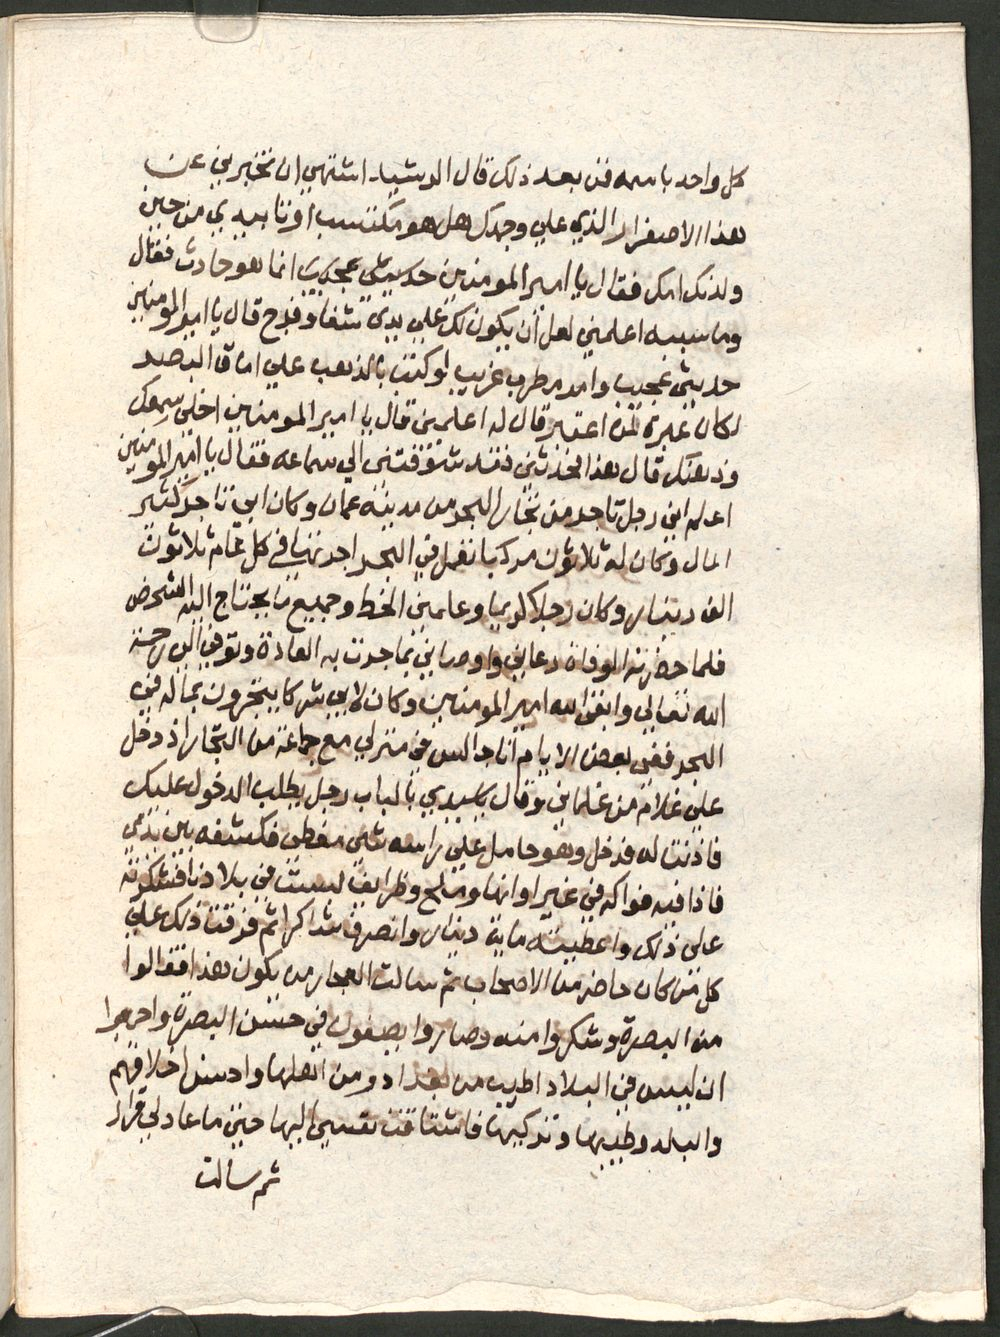 كل واحد باسمه فمن بعد ذلك قال الرشيد اشتهي ان تخبرني عن
هذا الاصفرار الذي علي وجهك هل هو مكتسب او نابيدي من حين
ولدتك امك فقال يا امير المومنين حديثي عجيب انما هو حادث فقال
وما سببه اعلمني لعل ان يكون لك علي يدي شفا وفرح قال يا امير المومنين
حديثي عجيب وامر مطرب غريب لو كتب بالذهب علي اماق البصر
لكان عبرة لمن اعتبر قال له اعلمني قال يا امير المومنين اخلي سمعك
وذهنك قال هذا فقد شوقتني الي سماعه فقال يا امير المومنين
اعلم اني رجل تاجر من تجار البحر من مدينه عمان وكان ابي تاجر كثير
المال وكان له ثلاثون مركبا تعمل في البحر اجرتها في كل عام ثلاثون
الف دينار وكان رجلا كريما وعلمني الخط وجميع ما يحتاج اليه الشخص
فلما حضرته الوفاة دعاني واوصاني بما جرت به العادة وتوفي الي رحمة
الله تعالي وابقي الله امير المومنين وكان لابي شركا يتجرون بماله في
البحر ففي بعض الايام انا جالس في منزلي مع جماعة من التجار اذ دخل
علي غلام من غلماني وقال يا سيدي بالباب رجل يطلب الدخول عليك
فاذنت له فدخل وهو حامل علي راسه شي مغطي فكشفه بين يدي
فاذا فيه فواكه في غير اوانها وملح وظرايف ليست في بلادنا فشكرته
علي ذلك واعطيته ماية دينار وانصرف شاكرا ثم فرقت ذلك علي
كل من كان حاضر من الاصحاب ثم سالت التجار من يكون هذا فقالوا
من البصرة وشكروا منه وصاروا يصفون في حسن البصرة واجمعوا
ان ليس في البلاد اطيب من بغداد ومن اهلها واحسن اخلاقهم
والبلد وطيبها وتركيبها فاشتاقت نفسي اليها حتي ما عاد لي قرار
ثم سالت